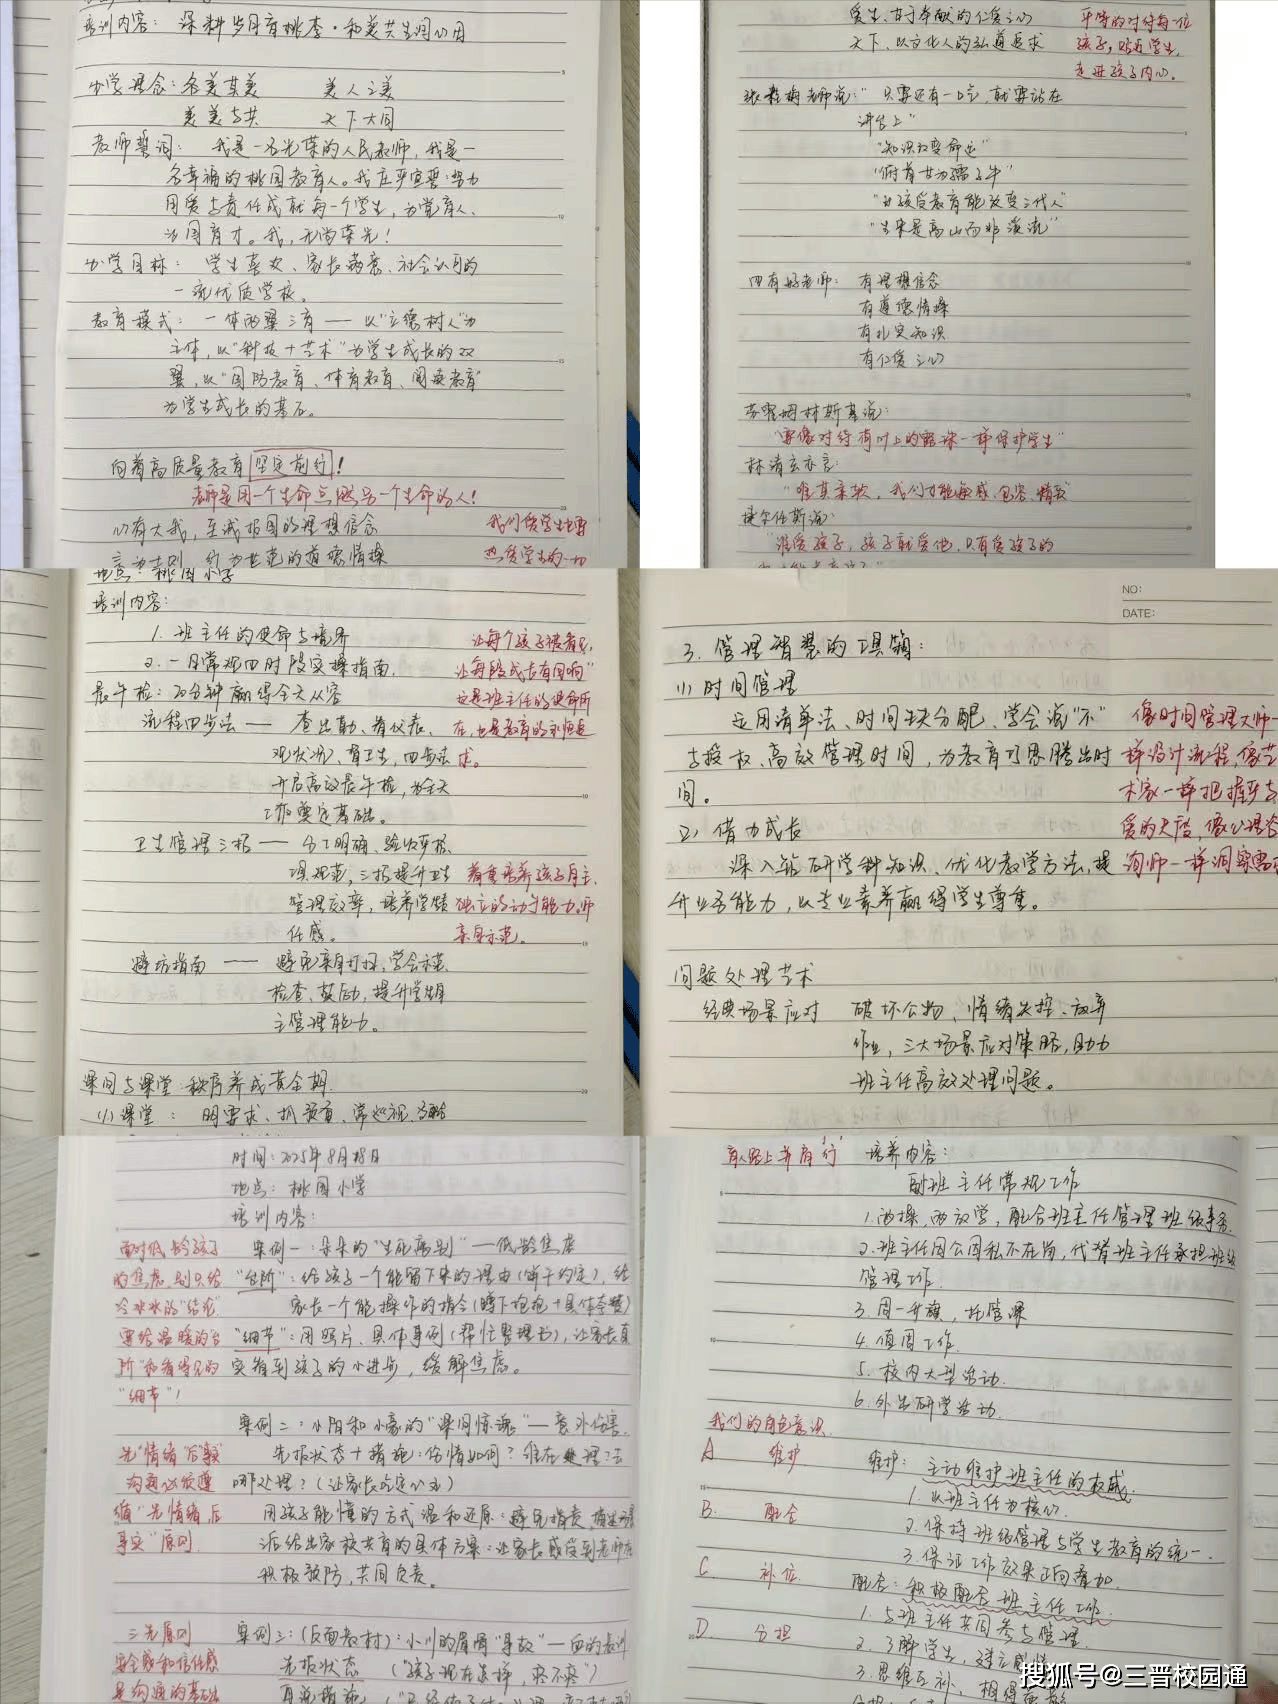 培训内容：深耕岁月育桃李·和美共生润心田
办学理念：各美其美　美人之美
美美与共　天下大同
教师誓词：我是一名光荣的人民教师，我是一
名幸福的桃园教育人。我庄严宣誓：努力
用爱与责任成就每一个学生，为党育人、
为国育才。我，无尚荣光！
办学目标：学生喜欢、家长满意、社会认可的
一流优质学校。
教育模式：一体两翼三育——以“立德树人”为
主体，以“科技+艺术”为学生成长的双
翼，以“国防教育、体育教育、阅读教育”
为学生成长的基石。
向着高质量教育坚定前行！
老师是用一个生命点燃另一个生命的人！
心有大我，至诚报国的理想信念
我们爱学生就要
热爱学生的一切
言为士则 行为世范的道德情操
爱生、甘于奉献的仁爱之心
天下、以文化人的弘道追求
平等的对待每一位
孩子，贴近学生，
走进孩子内心。
张桂梅老师说：“只要还有一口气，就要站在
讲台上”
“知识改变命运”
“俯首甘为孺子牛”
“女孩受教育能改变三代人”
“生来是高山而非溪流”
四有好老师：有理想信念
有道德情操
有扎实知识
有仁爱之心
苏霍姆林斯基说：
“要像对待荷叶上的露珠一样保护学生”
林清玄亦言：
“唯其柔软，我们才能敏感，包容，精致
“谁爱孩子，孩子就爱他，只有爱孩子的
地点：桃园小学
培训内容：
1. 班主任的使命与境界
2. 一日常规四时段实操指南.
晨午检：20分钟赢得全天从容
流程四步法——查出勤、看仪表、
观状况、督卫生，四步法
开启高效晨午检，为全天
工作奠定基础。
让每个孩子被看见，
让每段成长有回响”
这是班主任的使命所
在，也是教育的永恒追
求。
卫生管理三招——分工明确、验收严格、
项规范，三招提升卫生
管理效率，培养学生责
任感。
着重培养孩子自主、
独立的动手能力，师
亲自示范。
避坑指南——避免亲自打扫，学会示范、
检查、鼓励，提升学生自
主管理能力。
课间与课堂：秩序养成黄金期.
(1) 课堂：明要求、抓预备、常巡视
NO:
DATE:
3. 管理智慧的工具箱：
(1) 时间管理
运用清单法、时间块分配、学会说“不”
与授权、高效管理时间，为教育可思腾出时
间。
(2) 借力成长
深入钻研学科知识、优化教学方法，提
升业务能力，以专业素养赢得学生尊重。
像时间管理大师一
样设计流程，像艺
术家一样把握严与
爱的尺度，像心理咨
询师一样洞察
问题处理艺术
经典场景应对　破坏公物、情绪失控、放弃
作业，三大场景应对策略，助力
班主任高效处理问题。
时间：2025年8月28日
地点：桃园小学
培训内容：
案例一：朵朵的“生死离别”——低龄焦虑
“台阶”：给孩子一个能留下来的理由（饼干约定），给
家长一个能操作的指令（蹲下抱抱+具体夸赞）
“细节”：用照片、具体事例（帮忙整理书），让家长真
实看到孩子的小进步，缓解焦虑。
面对低龄孩子
的焦虑，别只给
冷冰冰的“结论”
要给温暖的“台
阶”和看得见的
“细节”！
案例二：小阳和小豪的“课间惊魂”——意外伤害
先报状态+措施：伤情如何？谁在处理？去
哪处理？（让家长吃定心丸）
用孩子能懂的方式温和还原：避免指责，
派给出家校共育的具体方案：让家长感受到老师在
积极预防，共同负责。
先“情绪”后“事实”
沟通必须遵
循“先情绪后
事实”原则.
案例三：（反面教材）：小川的眉骨“事故”——血的教训
先报状态（“孩子现在怎样，疼不疼”）
三先原则
安全感和信任感
是沟通的基础
育人路上并肩“行”　培养内容：
副班主任常规工作
1. 两操，两放学，配合班主任管理班级事务.
2. 班主任因公因私不在岗，代替班主任承担班级
管理工作.
3. 周一升旗，托管课
4. 值周工作.
5. 校内大型活动.
6. 外出研学活动.
我们的角色意识.
A 维护
B. 配合
C. 补位
D. 分担
维护：主动维护班主任的权威.
1. 以班主任为核心.
2. 保持班级管理与学生教育的统一.
3. 保证工作效果正向叠加.
配合：积极配合班主任工作.
1. 与班主任共同参与管理.
2. 了解学生，建立感情
3. 思维互补，相得益彰
搜狐号@三晋校园通